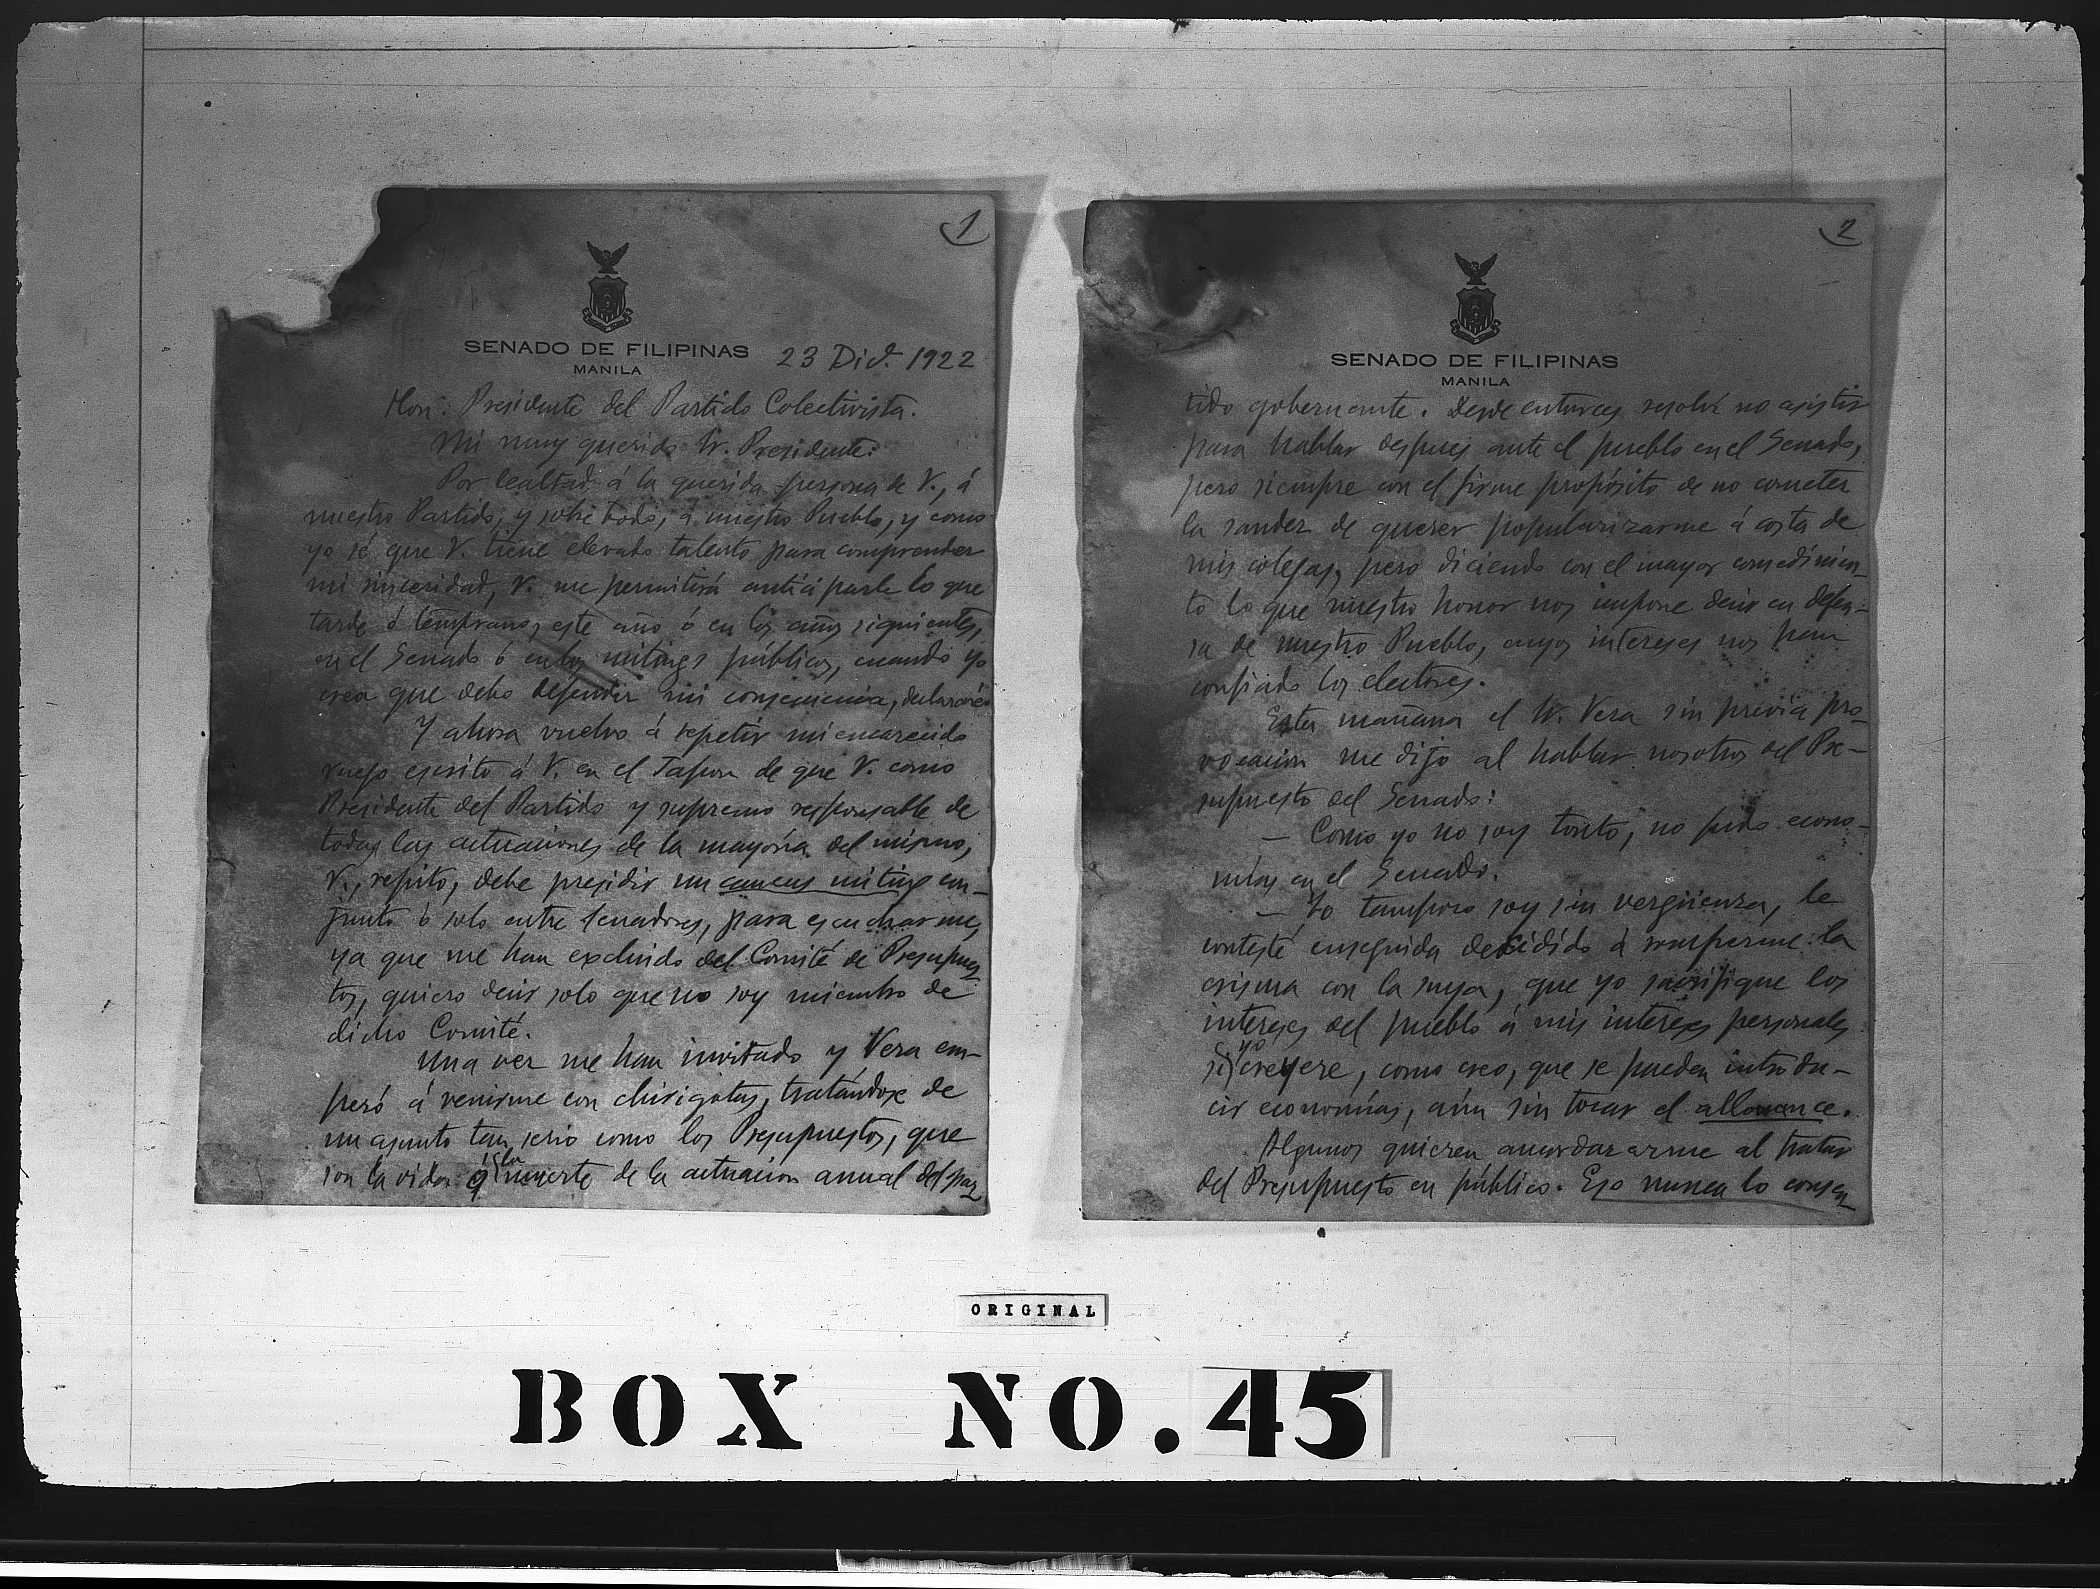 1
SENADO DE FILIPINAS
MANILA
23 Dic. 1922
Hon. Presidente del Partido Colectivista.
Mi muy querido Sr. Presidente:
Por lealtad á la querida persona de V., á
nuestro Partido, y sobre todo, á nuestro Pueblo, y como
yo sé que V. tiene elevado talento para comprender
mi sinceridad, V. me permitirá anticiparle lo que
tarde ó temprano, este año ó en los años siguientes,
en el Senado ó en los mitings públicos, cuando yo
crea que debo defender mi consecuencia, declararé.
Y ahora vuelvo á repetir mi encarecido
ruego escrito á V. en el de que V. como
Presidente del Partido y supremo responsable de
todas las actuaciones de la mayoría del mismo,
V., repito, debe presidir un caucus miting con-
junto ó solo entre senadores, para escucharme,
ya que me han excluido del Comité de Presupues-
tos, quiero decir solo que no soy miembro de
dicho Comité.
Una vez me han invitado y Vera em-
pezó á venirme con chirigotas, tratándose de
un asunto tan serio como los Presupuestos, que
son la vida ó la muerte de la actuación anual del par-
2
SENADO DE FILIPINAS
MANILA
tido gobernante. Desde entonces resolví no asistir
para hablar después ante el pueblo en el Senado,
pero siempre con el firme propósito de no cometer
la sandez de querer popularizarme á costa de
mis colegas, pero diciendo con el mayor comedimien-
to lo que nuestro honor nos impone decir en defen-
sa de nuestro Pueblo, cuyos intereses nos han
confiado los electores.
Esta mañana el Sr. Vera sin previa pro-
vocación me dijo al hablar nosotros del Pre-
supuesto del Senado:
— Como yo no soy tonto, no pido econo-
mías en el Senado.
— Yo tampoco soy sin vergüenza, le
contesté enseguida decidido á romperme la
crisma con la suya, que yo sacrifique los
intereses del pueblo á mis intereses personales
si yo creyere, como creo, que se pueden introdu-
cir economías, aún sin tocar el allowance.
Algunos quieren amordazarme al tratar
del Presupuesto en público. Eso nunca lo consen-
ORIGINAL
BOX NO. 45